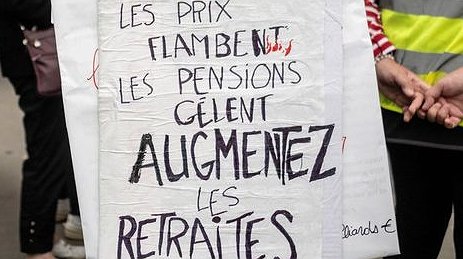 LES PRIX
FLAMBENT
LES PENSIONS
GÈLENT
AUGMENTEZ
LES
RETRAITES